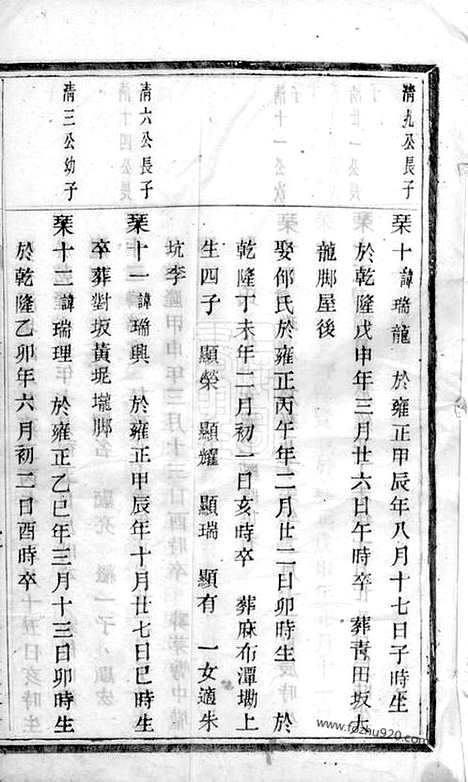 清九公長子
琹十 諱瑞龍 於雍正甲辰年八月十七日子時生
於乾隆戊申年三月廿六日午時卒 葬青田坂大
龍脚屋後
娶邰氏於雍正丙午年二月廿二日卯時生 於
乾隆丁未年二月初一日亥時卒 葬麻布潭墈上
生四子 顯榮 顯耀 顯瑞 顯有 一女適朱
坑李
清六公長子
琹十一 諱瑞興 於雍正甲辰年十月廿七日巳時生
卒葬對坂黃坭壠脚
清三公幼子
琹十二 諱瑞理 於雍正乙巳年三月十三日卯時生
於乾隆乙卯年六月初二日酉時卒
www.fozhu920.com